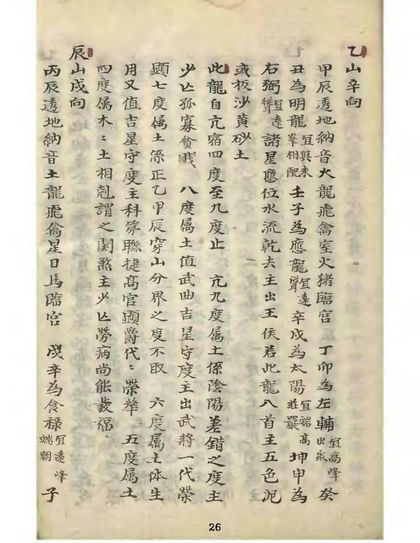 乙山辛向
甲辰透地納音火龍飛禽室火猪臨宮 丁卯為左輔宜高峰出秀癸
丑為明龍宜與未峯相配壬子為應龍宜遠聳辛戌為太陽宜端高莊嚴坤申為
右弼宜遠聳諸星應位水流乾去主出王侯若此龍入首主五色泥
或板沙黄砂土
此龍自亢宿四度至九度止 亢九度属土係陰陽差錯之度主
少亡孤寡貧賤 八度属土值武曲吉星守度主出武將一代榮
顕七度属土係正乙甲辰穿山分界之度不取 六度属土体生
用又值吉星守度主科蒙聯捷高官顕爵代〻榮華 五度属土
四度属木〻土相尅謂之関煞主少亡勞病尚能發福
辰山戌向
丙辰透地納音土龍飛禽星日馬臨宮 戌辛為食禄宜遠峰端朝子
26